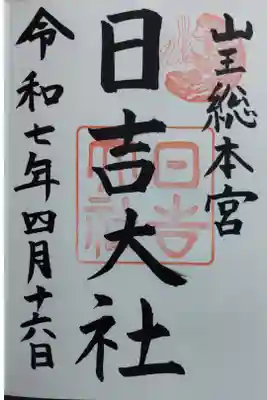 山王総本宮
日吉大社
令和七年四月十六日
日吉
大社